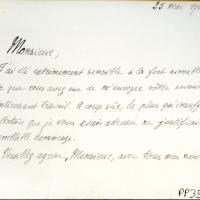 25 mai
Monsieur,
J'ai été extrêmement sensible à la fort aimable
que vous avez eue de m'envoyer votre
intéressant travail. A coup sûr, le plus
que je vous avais ne justifiait
semblable hommage.
Veuillez agréer, Monsieur, avec tous mes
PP35